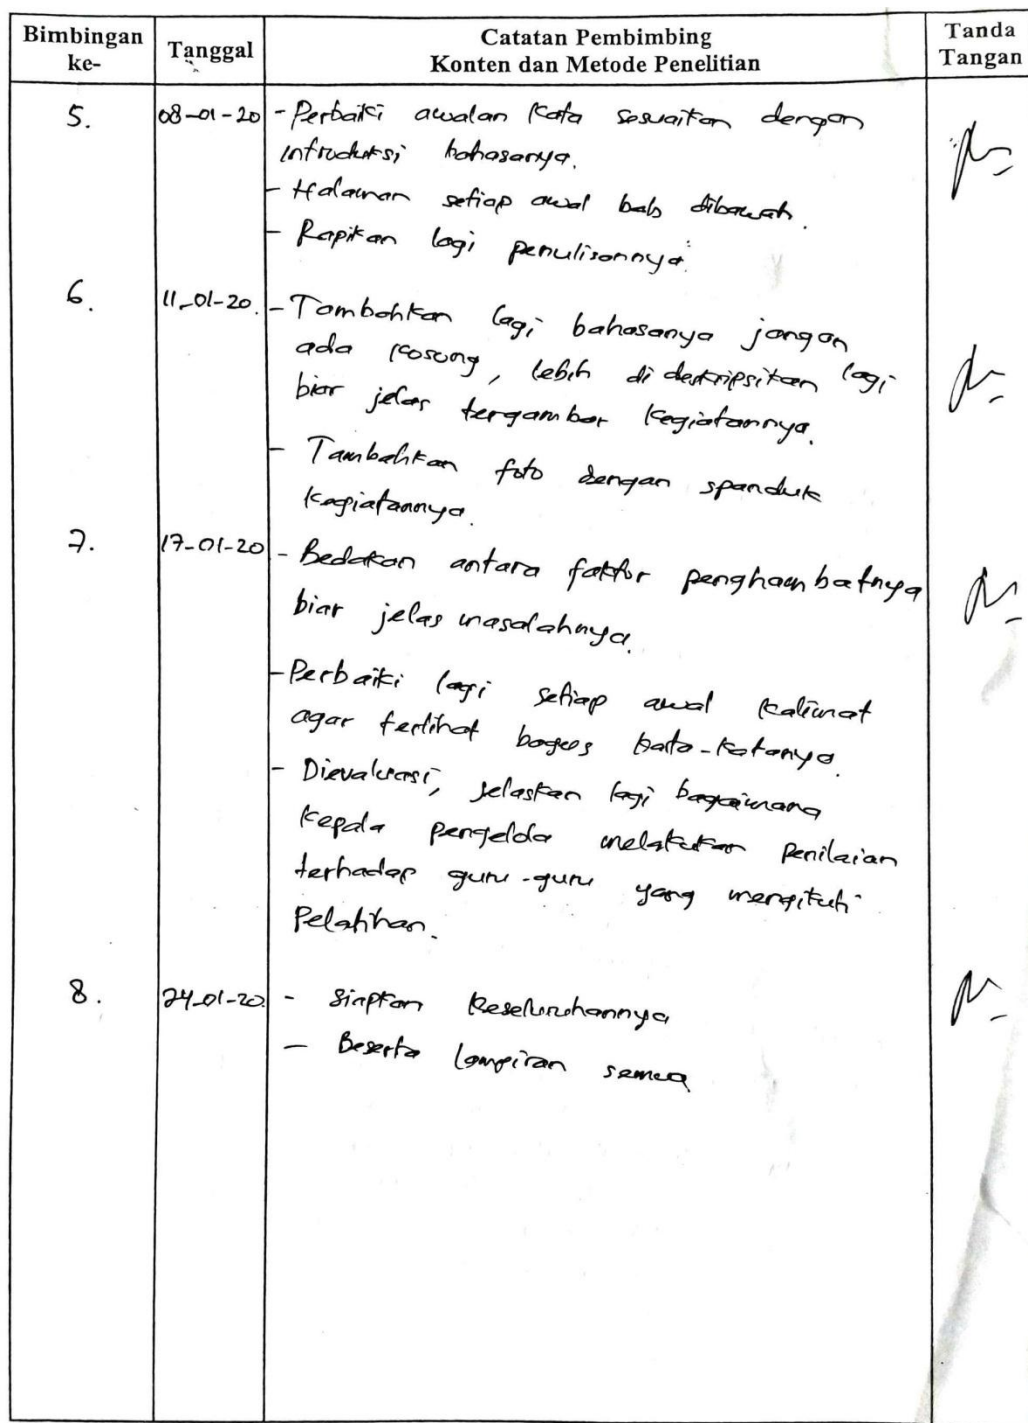 Bimbingan ke-
Tanggal
Catatan Pembimbing
Konten dan Metode Penelitian
Tanda Tangan
5.
08-01-20
- Perbaiki awalan kata sesuaikan dengan
introduksi bahasanya.
- Halaman setiap awal bab dibawah.
- Rapikan lagi penulisannya.
6.
11-01-20.
- Tambahkan lagi bahasanya jangan
ada kosong, lebih di deskripsikan lagi
biar jelas tergambar kegiatannya.
- Tambahkan foto dengan spanduk
kegiatannya.
7.
17-01-20
- Bedakan antara faktor penghambatnya
biar jelas masalahnya.
- Perbaiki lagi setiap awal kalimat
agar terlihat bagus kata-katanya.
- Dievaluasi, jelaskan lagi bagaimana
kepala pengelola melakukan penilaian
terhadap guru-guru yang mengikuti
Pelatihan.
8.
24-01-20.
- Siapkan keseluruhannya
- Beserta lampiran semua